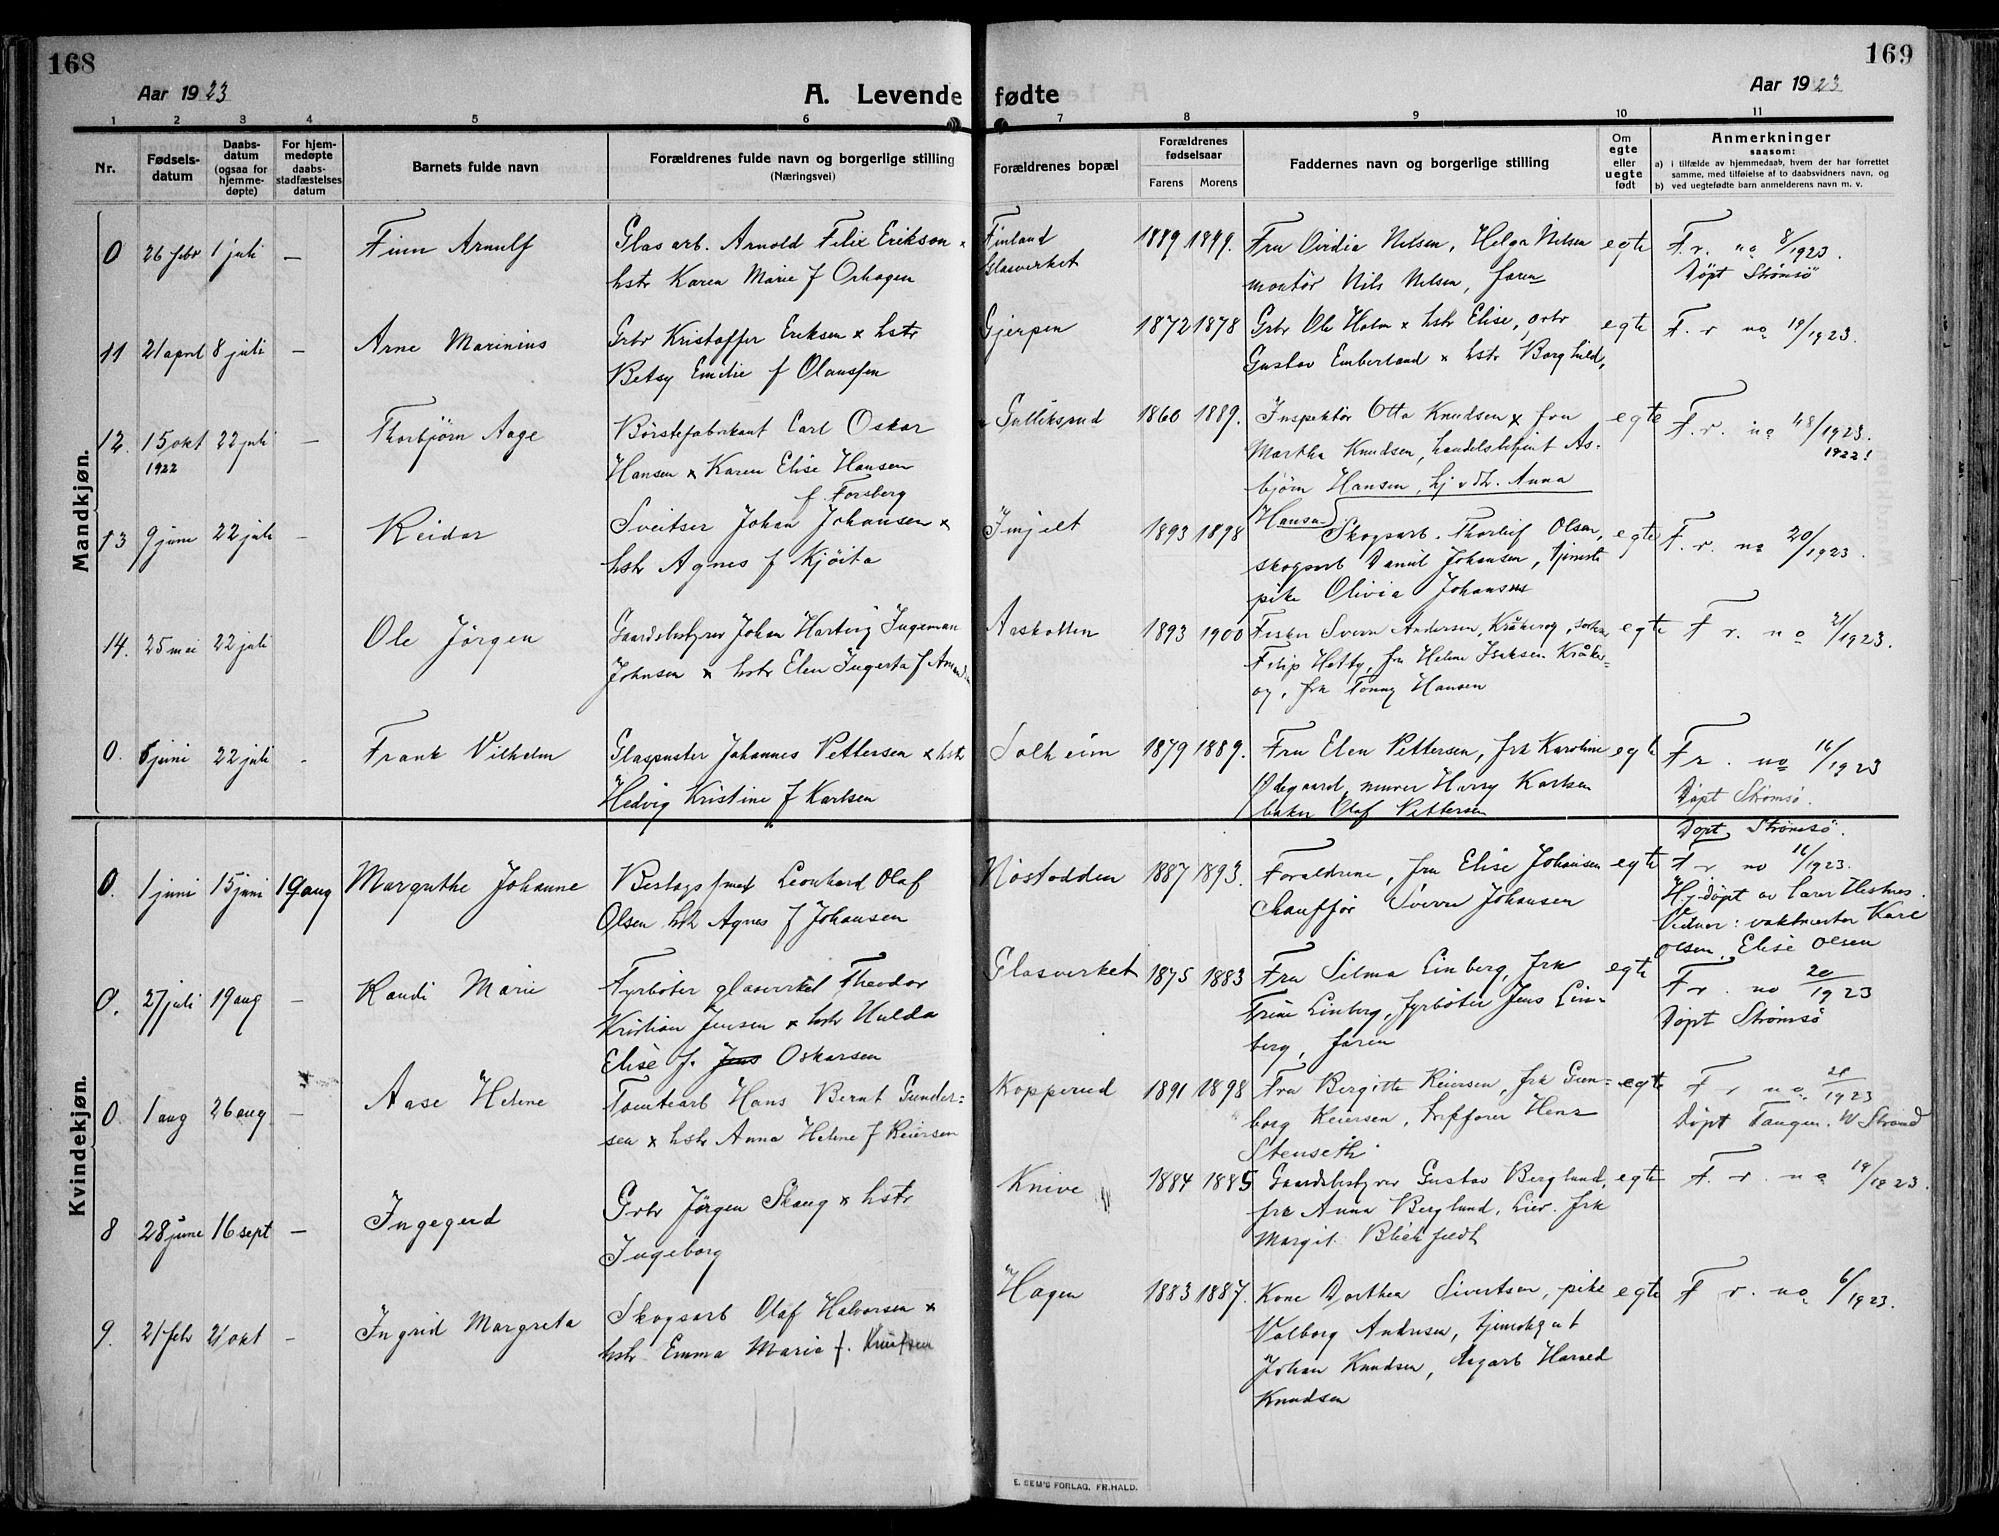 168
169
Aar 1923
A. Levende fødte
Aar 1923
1 2 3 4 5 6 7 8 9 10 11
Nr.
Fødselsdatum
Daabsdatum (ogsaa for hjemmedøpte)
For hjemmedøpte daabsstadfæstelses datum
Barnets fulde navn
Forældrenes fulde navn og borgerlige stilling
(Næringsvei)
Forældrenes bopæl
Forældrenes fødselsaar
Farens Morens
Faddernes navn og borgerlige stilling
Om egte eller uegte født
Anmerkninger
saasom:
a) i tilfælde av hjemmedaab, hvem der har forrettet
samme, med tilføielse af to daabsvidners navn, og
b) ved uegtefødte barn anmelderens navn m. v.
Mandkjøn.
0 26 febr 1 juli — Finn Arnulf
Glasarb. Arnold Felix Erikson x
hstr Karen Marie f Orhagen
Finland
Glasverket
1889 1899.
Fru Ovidia Nilsen, Helga Nilsen
montør Nils Nilsen, faren
egte
F. r. no 8/1923.
Døpt Strømsø
11 21 april 8 juli — Arne Marinius
Grbr Kristoffer Eriksen x hstr
Betsy Emilie f Olaussen
Gjerpen
1872 1878
Grbr Ole Holm x hstr Elise, grbr
Gustav Emberland x hstr Borghild,
egte
F. r no 18/1923.
12. 15 okt 1922 22 juli — Thorbjørn Aage
Børstefabrikant Carl Oskar
Hansen x Karen Elise Hansen
f. Forsberg
Gulliksrud
1860 1889.
Inspektør Otto Knudsen x fru
Martha Knudsen, handelsbetjent As-
bjørn Hansen, hj v dh. Anna
Hansen
egte
F. r. no 48/1923.
1922!
13 9 juni 22 juli — Reidar
Sveitser Johan Johansen x
hstr Agnes f Kjøita
Imjelt
1893 1898
Skogsarb. Thorleif Olsen,
skogsarb Daniel Johansen, tjeneste
pike Olivia Johansen
egte
F. r. no 20/1923.
14. 25 mei 22 juli Ole Jørgen
Gaardsbstyrer Johan Hartvig Ingeman
Johnsen x hstr Elen Ingerta f
Aaskollen
1893 1900
Fisker Sverre Andersen, Kråkerøy,
Filip Hotty, fru Helene Isaksen Kråke-
røy, frk Tonny Hansen
egte
F r. no 21/1923.
0. juni 22 juli - Frank Vilhelm
Glaspuster Johannes Pettersen x hstr
Hedvig Kristine f Karlsen
Solheim
1879 1889.
Fru Elen Pettersen, frk Karoline
Ødegaard, murer Harry Karlsen
baker Olaf Pettersen
egte
F r. no 16/1923
Døpt Strømsø.
Kvindekjøn.
0. 1 juni 15 juni 19 aug Margrethe Johanne
Beslagsmed Leonhard Olaf
Olsen, hstr Agnes f Johansen
Nøstodden
1887 1893.
Foraldrene, fru Elise Johansen
Chauffør Sverre Johansen
egte
Døpt Strømsø.
F r no 16/1923.
Hj.døpt av lærer Hestnes.
Vidner: vaktmester Kare
Olsen, Elise Olsen
0. 27 juli 19 aug — Randi Marie
Fyrbøter glasverket Theodor
Kristian Jensen x hstr Hulda
Elise f. Jens Oskarsen
Glasverket
1875 1883
Fru Silma Linberg, frk
Trine Linberg, fyrbøter Jens Lin-
berg, faren
egte
F r. no 20/1923
Døpt Strømsø
0. 1 aug 26 aug — Aase Helene
Tomtearb Hans Bernt Gunder-
sen x hstr Anna Helene f Reiersen
Kopperud
1891 1898
Fru Bergitte Reiersen, frk Gun-
borg Reiersen, skipfører Hans
Stenseth
egte
F r no 21/1923
Døpt Tangen. W Strand
8 28 june 16 sept — Ingegerd
Grbr Jørgen Skaug x hstr
Ingeborg
Knive
1884 1885
Gaardsbstyrer Gustav Berglund,
frk Anna Berglund, Lier. frk
Margit Blichfeldt
egte
F. r. no 19/1923.
9. 21 febr 21 okt — Ingrid Margreta
Skogsarb Olaf Halvorsen x
hstr Emma Marie f. Knutsen
Hagen
1883 1887.
Kone Dorthea Sivertsen, pike
Valborg Andresen, tjenestegut
Johan Knudsen, Harald
Knudsen
egte
F r. no 6/1923.
E. SEM'S FORLAG, FR.HALD.